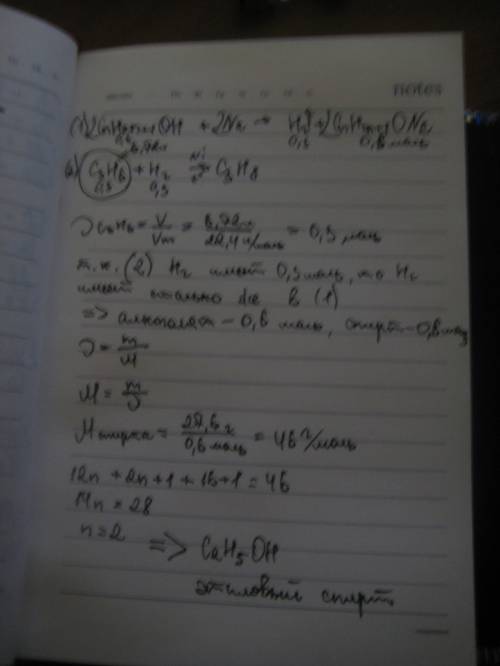 notes
(1) 2CnH2n+1OH + 2Na → H2↑ + 2CnH2n+1ONa
0,6 0,3 0,6 моль
6,72л
(2) C3H6 + H2 ⇄ C3H8
Ni
0,3 0,3
υ C3H6 = V/Vm = 6,72л/22,4 л/моль = 0,3 моль
т.к. (2) H2 имеет 0,3 моль, то H2
имеет столько же в (1)
=> алкоголят – 0,6 моль, спирт – 0,6 моль
υ = m/M
M = m/υ
M спирта = 27,6 г/0,6 моль = 46 г/моль
12n + 2n + 1 + 16 + 1 = 46
14n = 28
n = 2 => C2H5OH
этиловый спирт